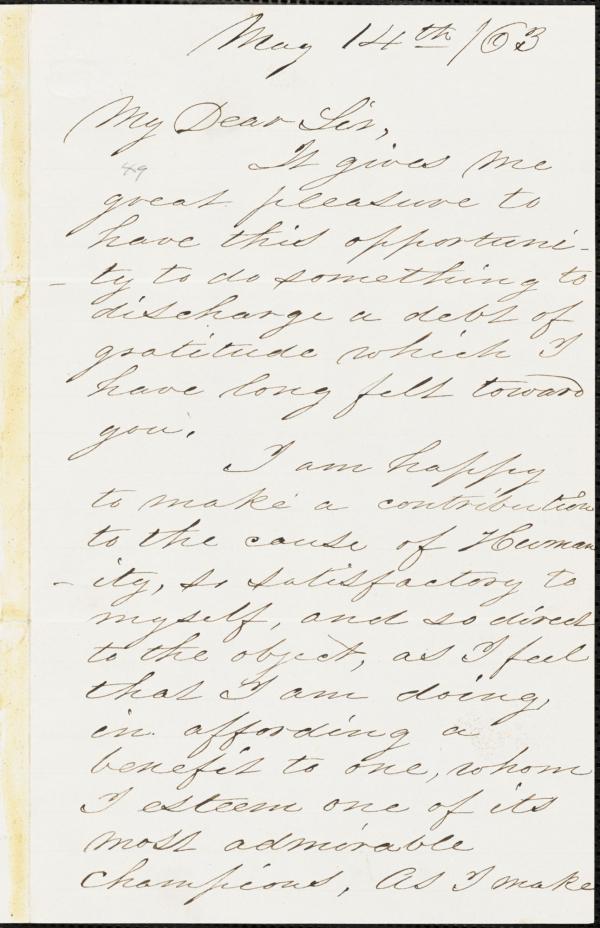 May 14th /63
My Dear Sir,
49
It gives me
great pleasure to
have this opportuni-
-ty to do something to
discharge a debt of
gratitude which I
have long felt toward
you.
I am happy
to make a contribution
to the cause of Human
-ity, so satisfactory to
myself, and so direct
to the object, as I feel
that I am doing,
in affording a
benefit to one, whom
I esteem one of its
most admirable
champions, As I make